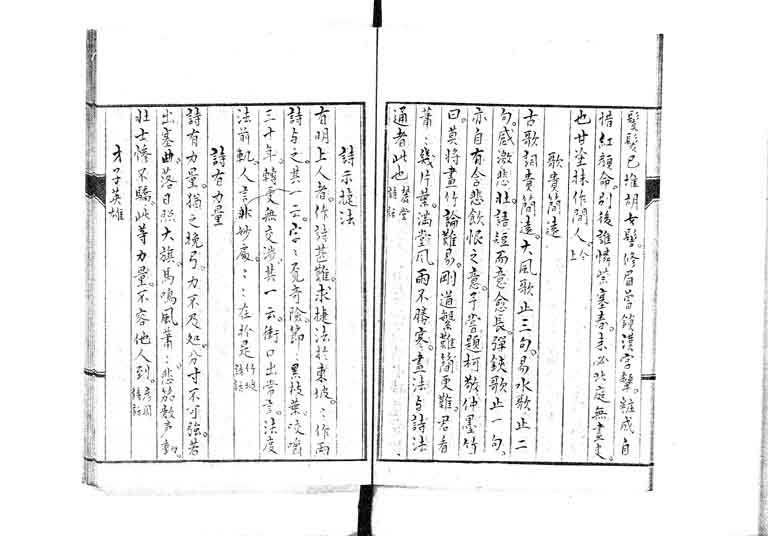 鬟髮已堆胡女髻。修眉曾鎖漢宮顰。粧成自
惜紅顏命。別後誰憐紫塞春。未必北庭無畫史。
也甘塗抹作閒人。仝上
歌貴簡遠
古歌詞貴簡遠。大風歌止三句。易水歌止二
句。感激悲壯。語短而意愈長。彈鋏歌止一句。
亦自有含悲飲恨之意。予嘗題柯敬仲墨竹
曰。莫將畫竹論難易。剛道繁難簡更難。君看
蕭〻幾片葉。滿堂風雨不勝寒。畫法与詩法
通者此也 麓堂詩話
詩示捷法
有明上人者。作詩甚難。求捷法於東坡。〻作兩
詩与之。其一云。字〻覓奇險。節〻累枝葉。咬嚼
三十年。轉更無交涉。其一云。衝口出常言。法度
法前軌。人言非妙處。〻〻在於是 竹坡詩話
詩有力量
詩有力量。猶之挽弓。力不及処。分寸不可強。若
出塞曲。落日照大旗。馬鳴風蕭〻。悲笳數声動。
壯士慘不驕。此等力量。不容他人到。彥周詩話
才子英雄